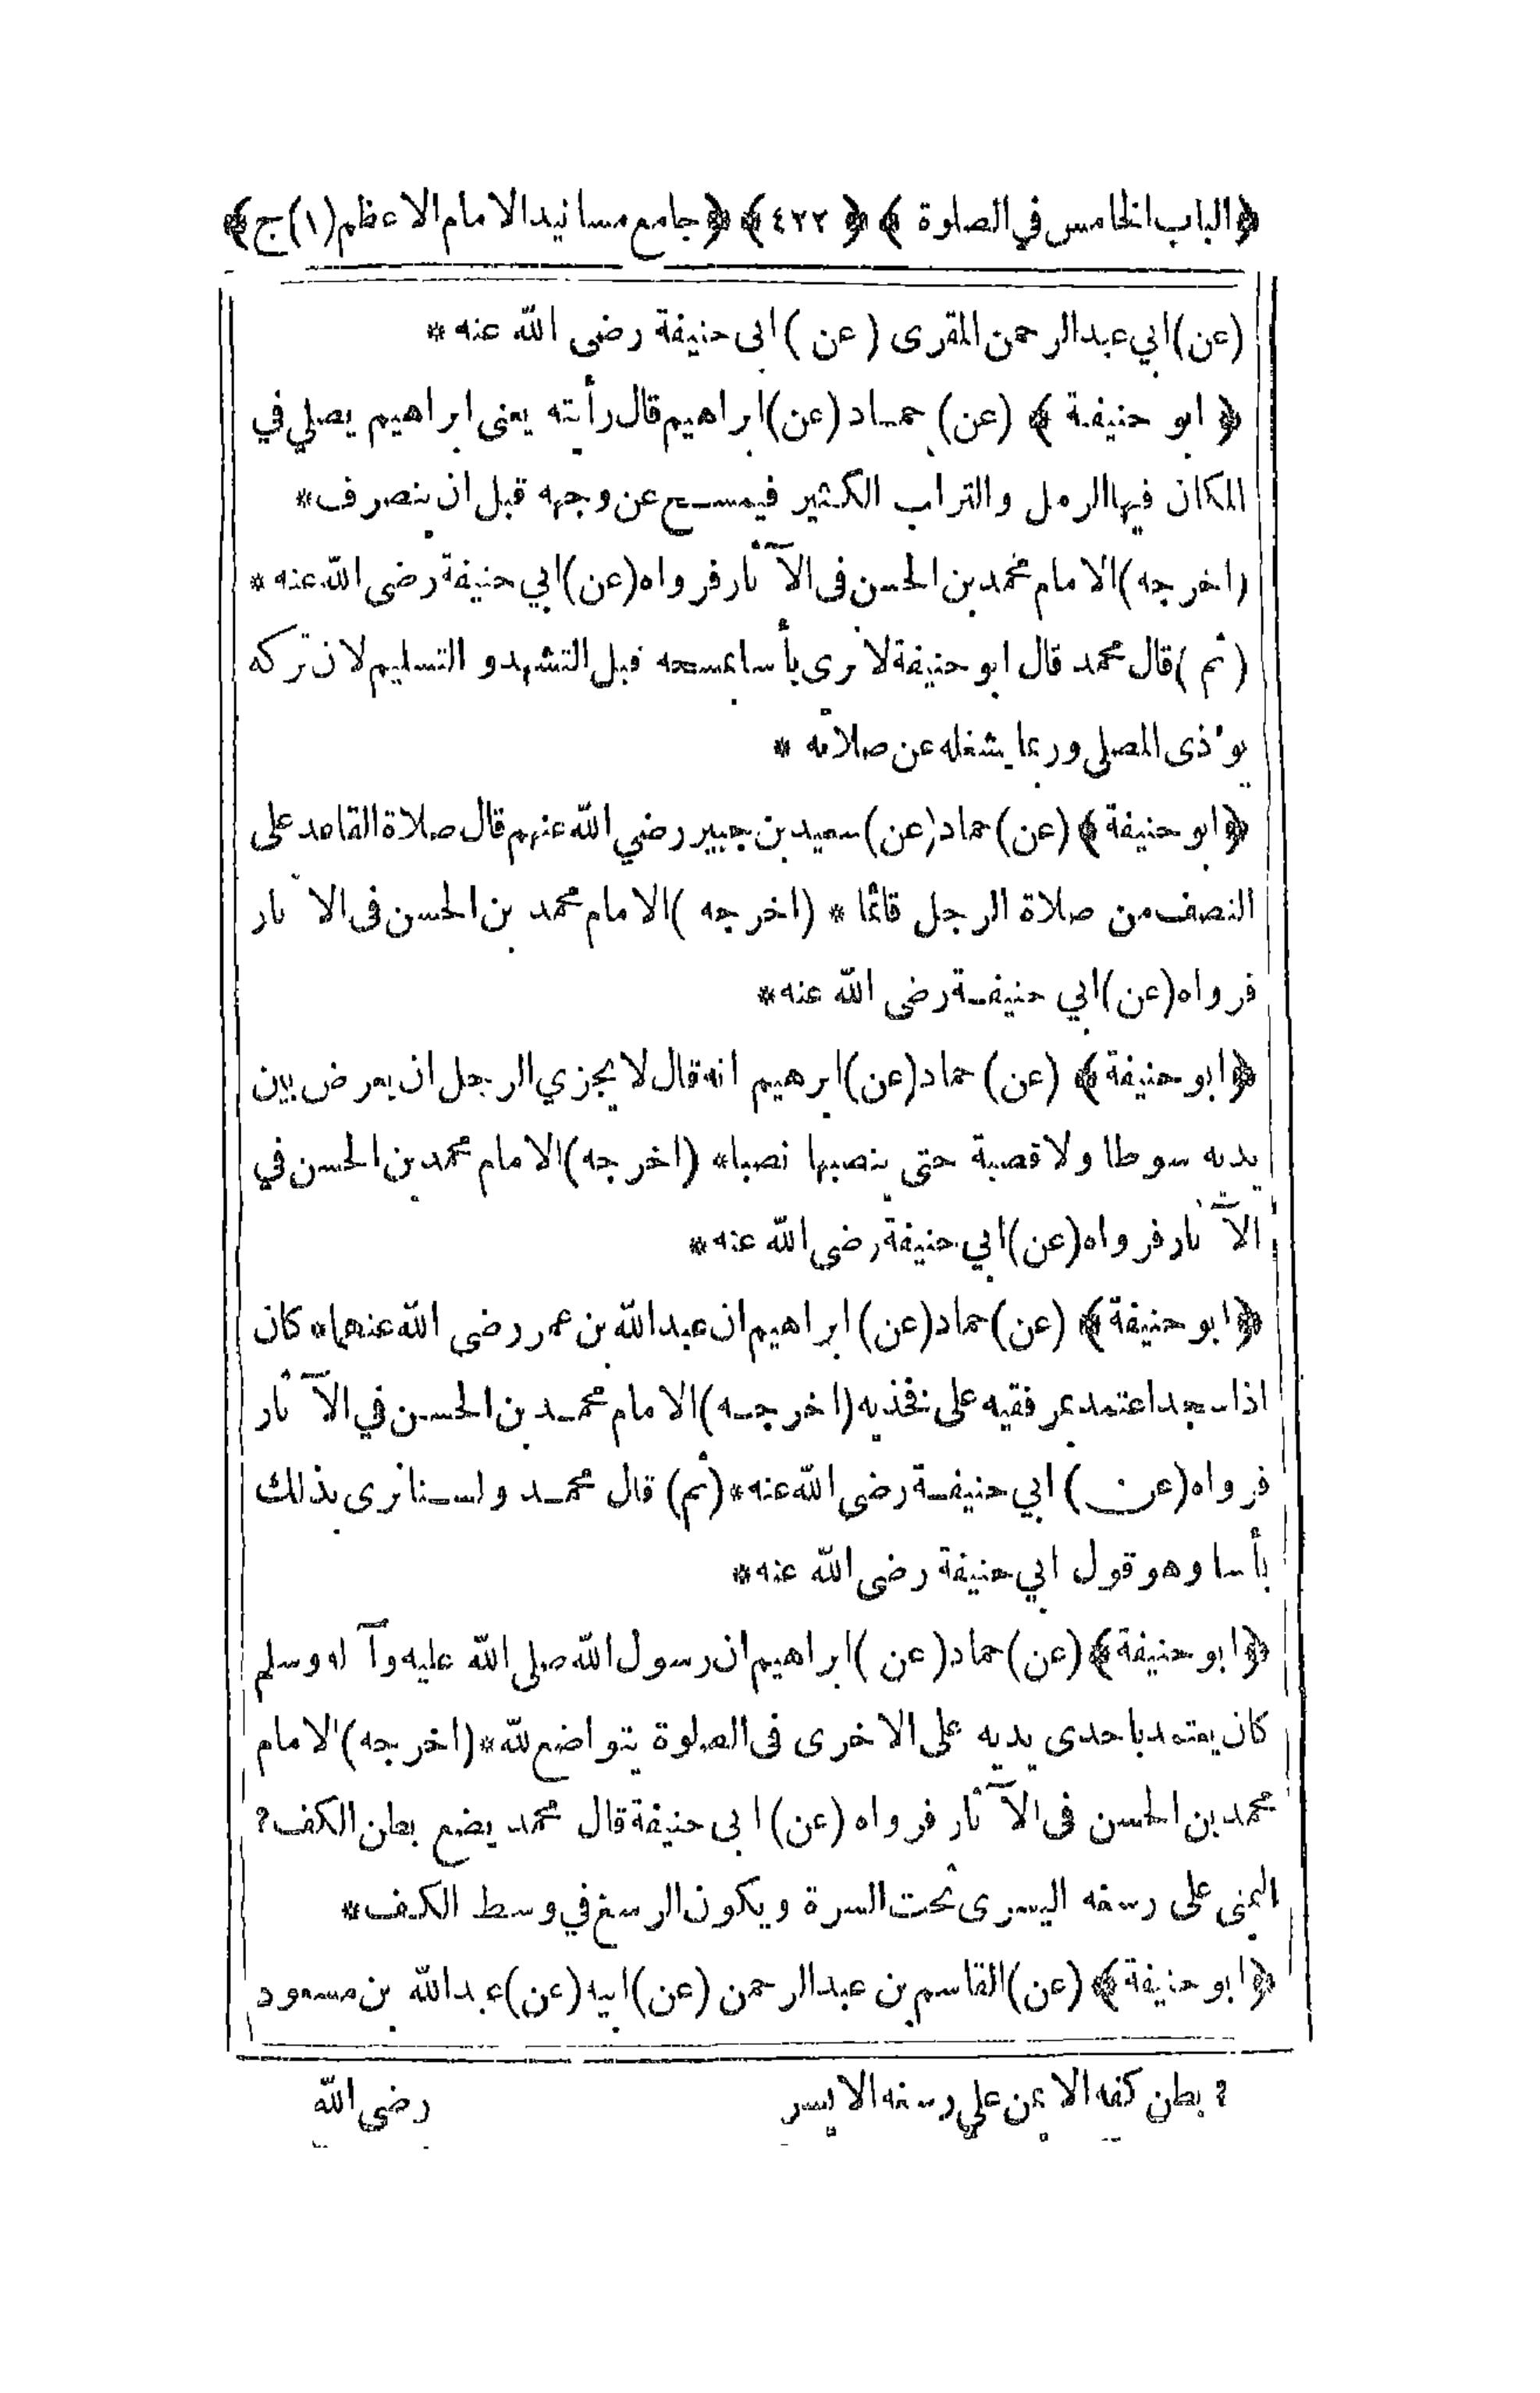 ﴿الباب الخامس في الصلوة﴾ ﴿٤٢٢﴾ ﴿جامع مسانيد الامام الاعظم (١) ج﴾
(عن) ابي عبد الرحمن المقرى (عن) ابى حنيفة رضى الله عنه *
﴿ابو حنيفة﴾ (عن) حماد (عن) ابراهيم قال رأيته يعنى ابراهيم يصلي في
المكان فيها الرمل والتراب الكثير فيمسح عن وجهه قبل ان ينصرف *
(اخرجه) الامام محمد بن الحسن فى الآثار فرواه (عن) ابي حنيفة رضى الله عنه *
(ثم) قال محمد قال ابو حنيفة لا نرى بأسا بمسحه قبل التشهد والتسليم لان تركه
يوٴذى المصلى وربما يشغله عن صلاته *
﴿ابو حنيفة﴾ (عن) حماد (عن) سعيد بن جبير رضي الله عنهم قال صلاة القاعد على
النصف من صلاة الرجل قائما * (اخرجه) الامام محمد بن الحسن فى الاثار
فرواه (عن) ابي حنيفة رضى الله عنه *
﴿ابو حنيفة﴾ (عن) حماد (عن) ابرهيم انه قال لا يجزي الرجل ان يعرض بين
يديه سوطا ولا قصبة حتى ينصبها نصبا * (اخرجه) الامام محمد بن الحسن في
الآثار فرواه (عن) ابي حنيفة رضى الله عنه *
﴿ابو حنيفة﴾ (عن) حماد (عن) ابراهيم ان عبد الله بن عمر رضى الله عنهما * كان
اذا سجد اعتمد بمرفقيه على فخذيه (اخرجه) الامام محمد بن الحسن في الآثار
فرواه (عن) ابي حنيفة رضى الله عنه * (ثم) قال محمد ولسنا نرى بذلك
بأسا وهو قول ابي حنيفة رضى الله عنه *
﴿ابو حنيفة﴾ (عن) حماد (عن) ابراهيم ان رسول الله صلى الله عليه وآله وسلم
كان يعتمد باحدى يديه على الاخرى فى الصلوة يتواضع لله * (اخرجه) الامام
محمد بن الحسن فى الآثار فرواه (عن) ابى حنيفة قال محمد يضع بطن الكف ؟
اليمنى على رسغه اليسرى تحت السرة ويكون الرسغ في وسط الكف *
﴿ابو حنيفة﴾ (عن) القاسم بن عبد الرحمن (عن) ابيه (عن) عبد الله بن مسعود
؟ بطن كفه الايمن علي رسغه الايسر
رضى الله